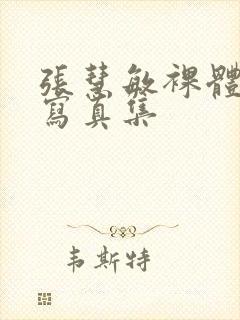 張慧敏裸體
寫真集
韦斯特